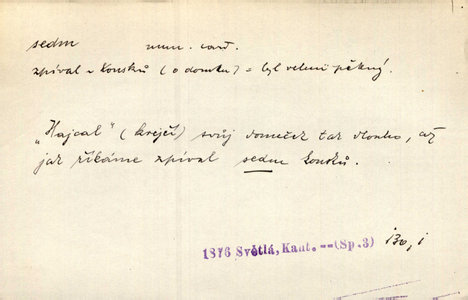 sedm num. card.
zpíval v kousků (o domku) = byl velmi pěkný.
„Hajcal" (krejčí) svůj domeček tak dlouho, až
jak říkáme zpíval sedm kousků.
1876 Světlá, Kant. -- (Sp.3)